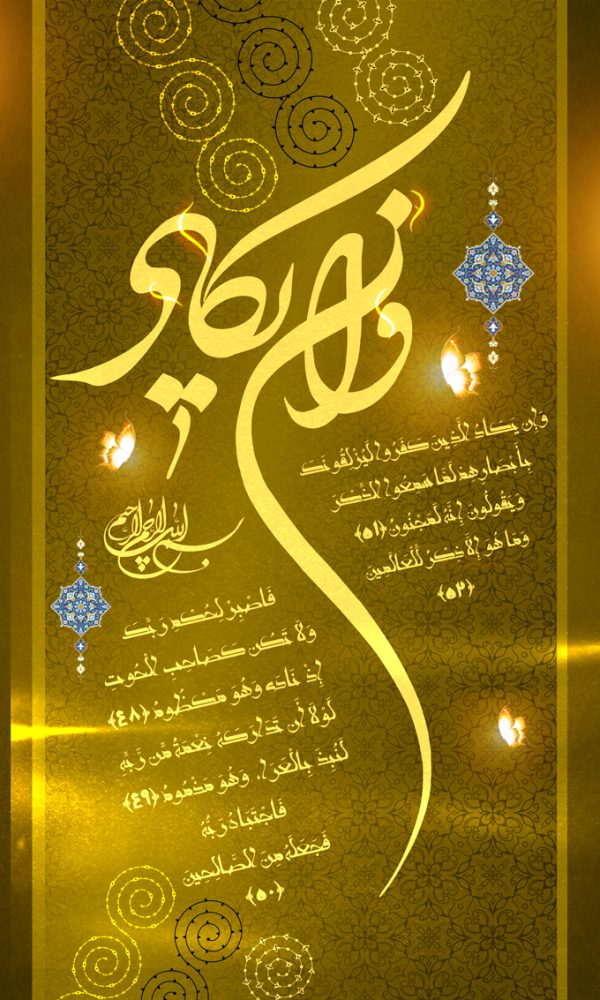 وإن يكاد
بسم الله الرحمن الرحيم
فَاصْبِرْ لِحُكْمِ رَبِّكَ
وَلَا تَكُن كَصَاحِبِ الْحُوتِ
إِذْ نَادَى وَهُوَ مَكْظُومٌ ﴿٤٨﴾
لَوْلَا أَن تَدَارَكَهُ نِعْمَةٌ مِّن رَّبِّهِ
لَنُبِذَ بِالْعَرَاء وَهُوَ مَذْمُومٌ ﴿٤٩﴾
فَاجْتَبَاهُ رَبُّهُ
فَجَعَلَهُ مِنَ الصَّالِحِينَ
﴿٥٠﴾
وَإِن يَكَادُ الَّذِينَ كَفَرُوا لَيُزْلِقُونَكَ
بِأَبْصَارِهِمْ لَمَّا سَمِعُوا الذِّكْرَ
وَيَقُولُونَ إِنَّهُ لَمَجْنُونٌ ﴿٥١﴾
وَمَا هُوَ إِلَّا ذِكْرٌ لِّلْعَالَمِينَ
﴿٥٢﴾